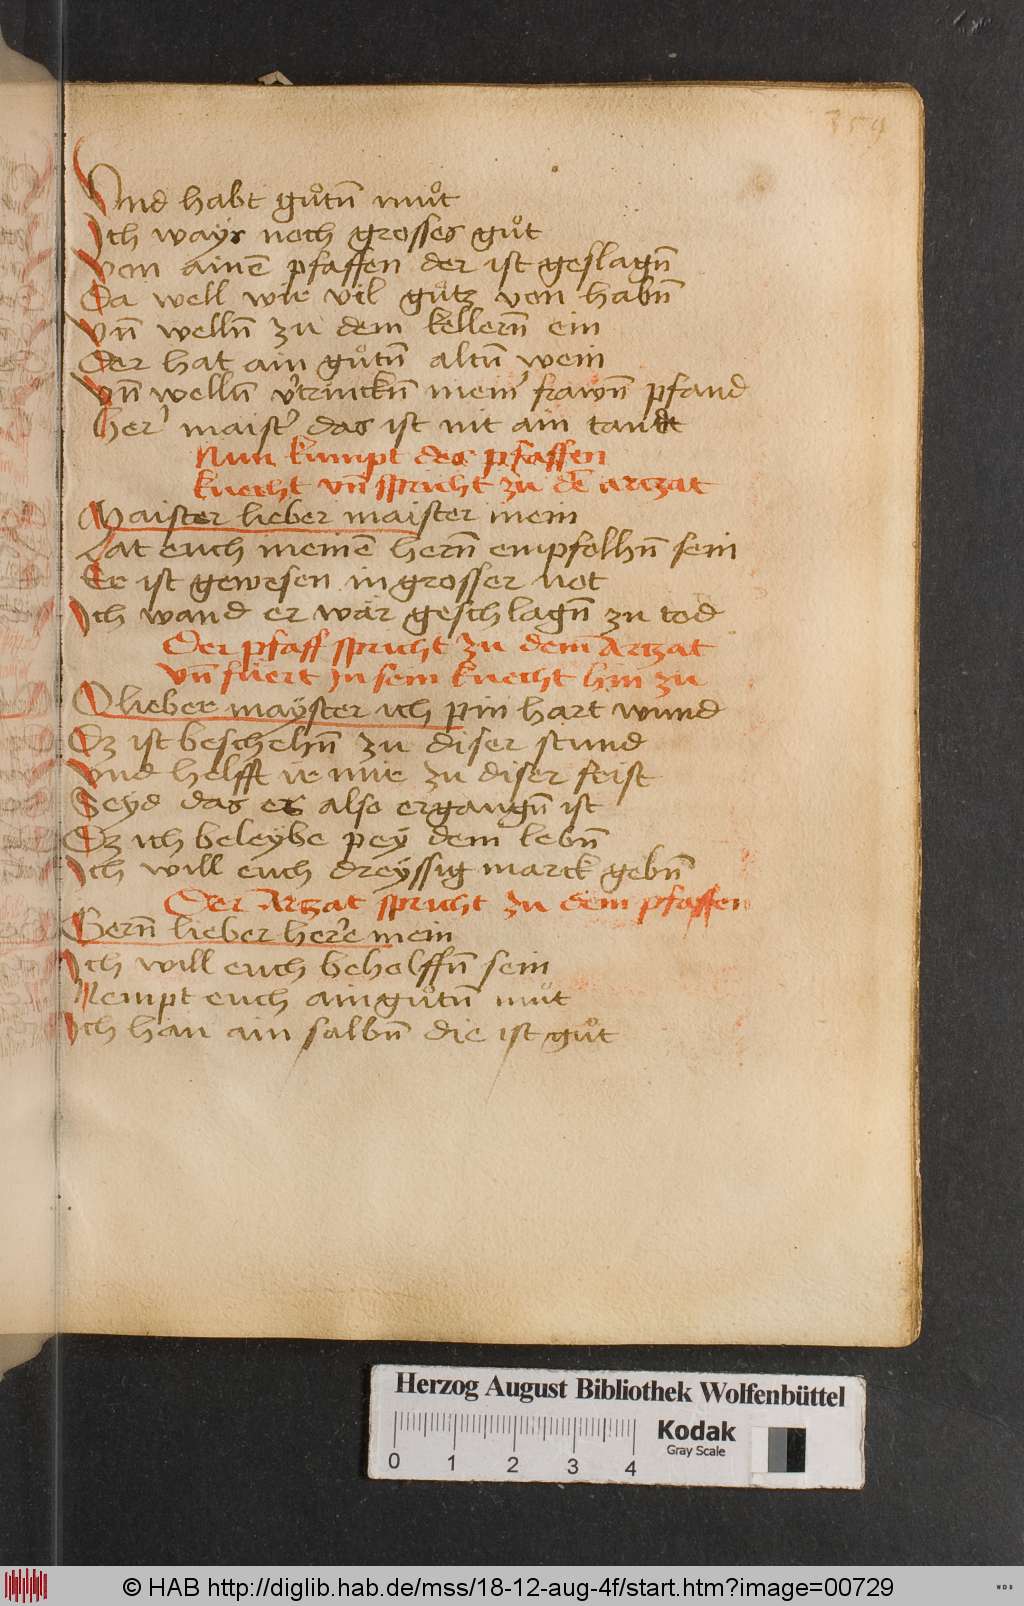 354
Vnd habt guͦtn̄ muͦt
Ich ways noch grosses guͦt
Von ainē pfaffen der ist geslagn̄
Da well wir vil guͦtz von habn̄
Vn̄ welln̄ zu dem kellern̄ ein
Der hat ain guͦtn̄ altn̄ wein
Vn̄ welln̄ v'trinckn̄ mein' frawn̄ pfand
Her' maist' das ist nit ain tandt
Nun kumpt des pfaffen
knecht vn̄ spricht zu dē artzat
Maister lieber maister mein
Lat euch meinē hern̄ empfolhn̄ sein
Er ist gewesen in grosser not
Ich wand er wär geschlagn̄ zu tod
Der pfaff spricht zu dem Artzat
vn̄ fuert jn sein knecht hin zu
O lieber maÿster ich pin hart wund
Dz ist beschehn̄ zu diser stund
Vnd helfft ir mir zu diser frist
Seyd das es also ergangn̄ ist
Dz ich beleybe peÿ dem lebn̄
Ich will euch dreÿssig marck gebn̄
Der Artzat spricht zu dem pfaffen
Gern̄ lieber her'e mein
Ich will euch beholffn̄ sein
Nempt euch ain guͦtn̄ muͦt
Ich han ain salbn̄ die ist guͦt
Herzog August Bibliothek Wolfenbüttel
Kodak
Gray Scale
0 1 2 3 4
© HAB http://diglib.hab.de/mss/18-12-aug-4f/start.htm?image=00729